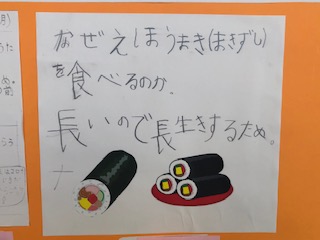 なぜえほうまき(まきずし)
を食べるのか.
長いので長生きするため。